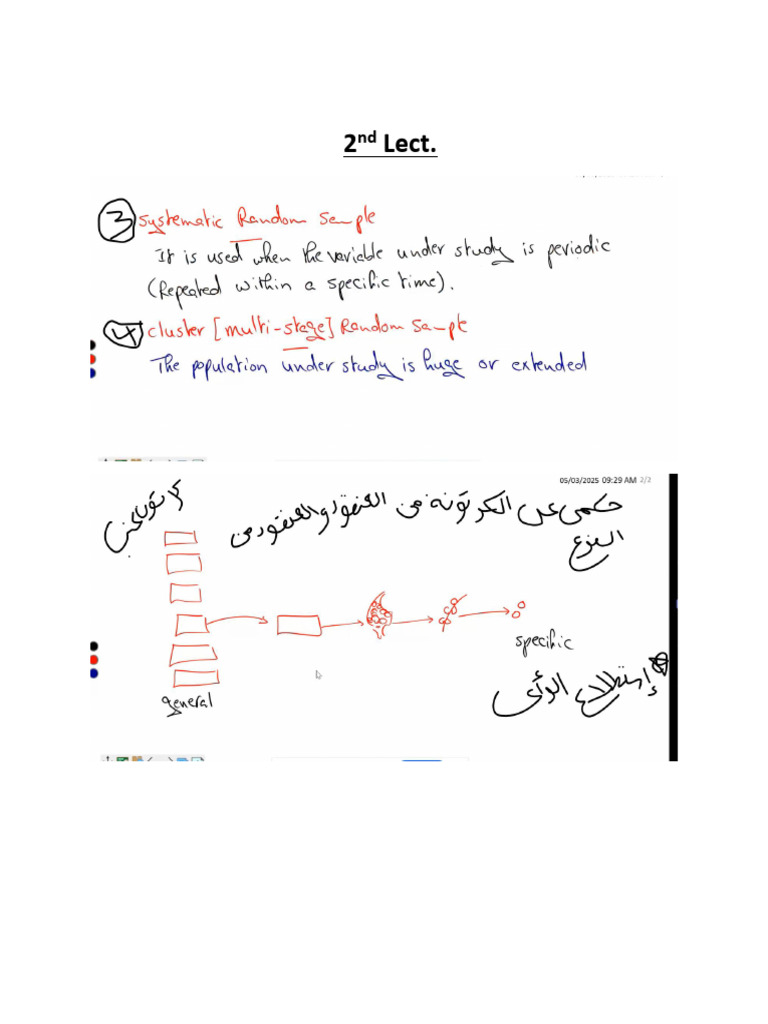 2nd Lect.
3 Systematic Random Sample
It is used when the variable under study is periodic
(Repeated within a specific time).
4 cluster [multi-stage] Random Sample
The population under study is huge or extended
05/03/2025 09:29 AM 2/2
كراتون عنب
حكمى على الكرتونة من العنقود والعنقود من
الفرع
specific
general
إستطلاع الرأى